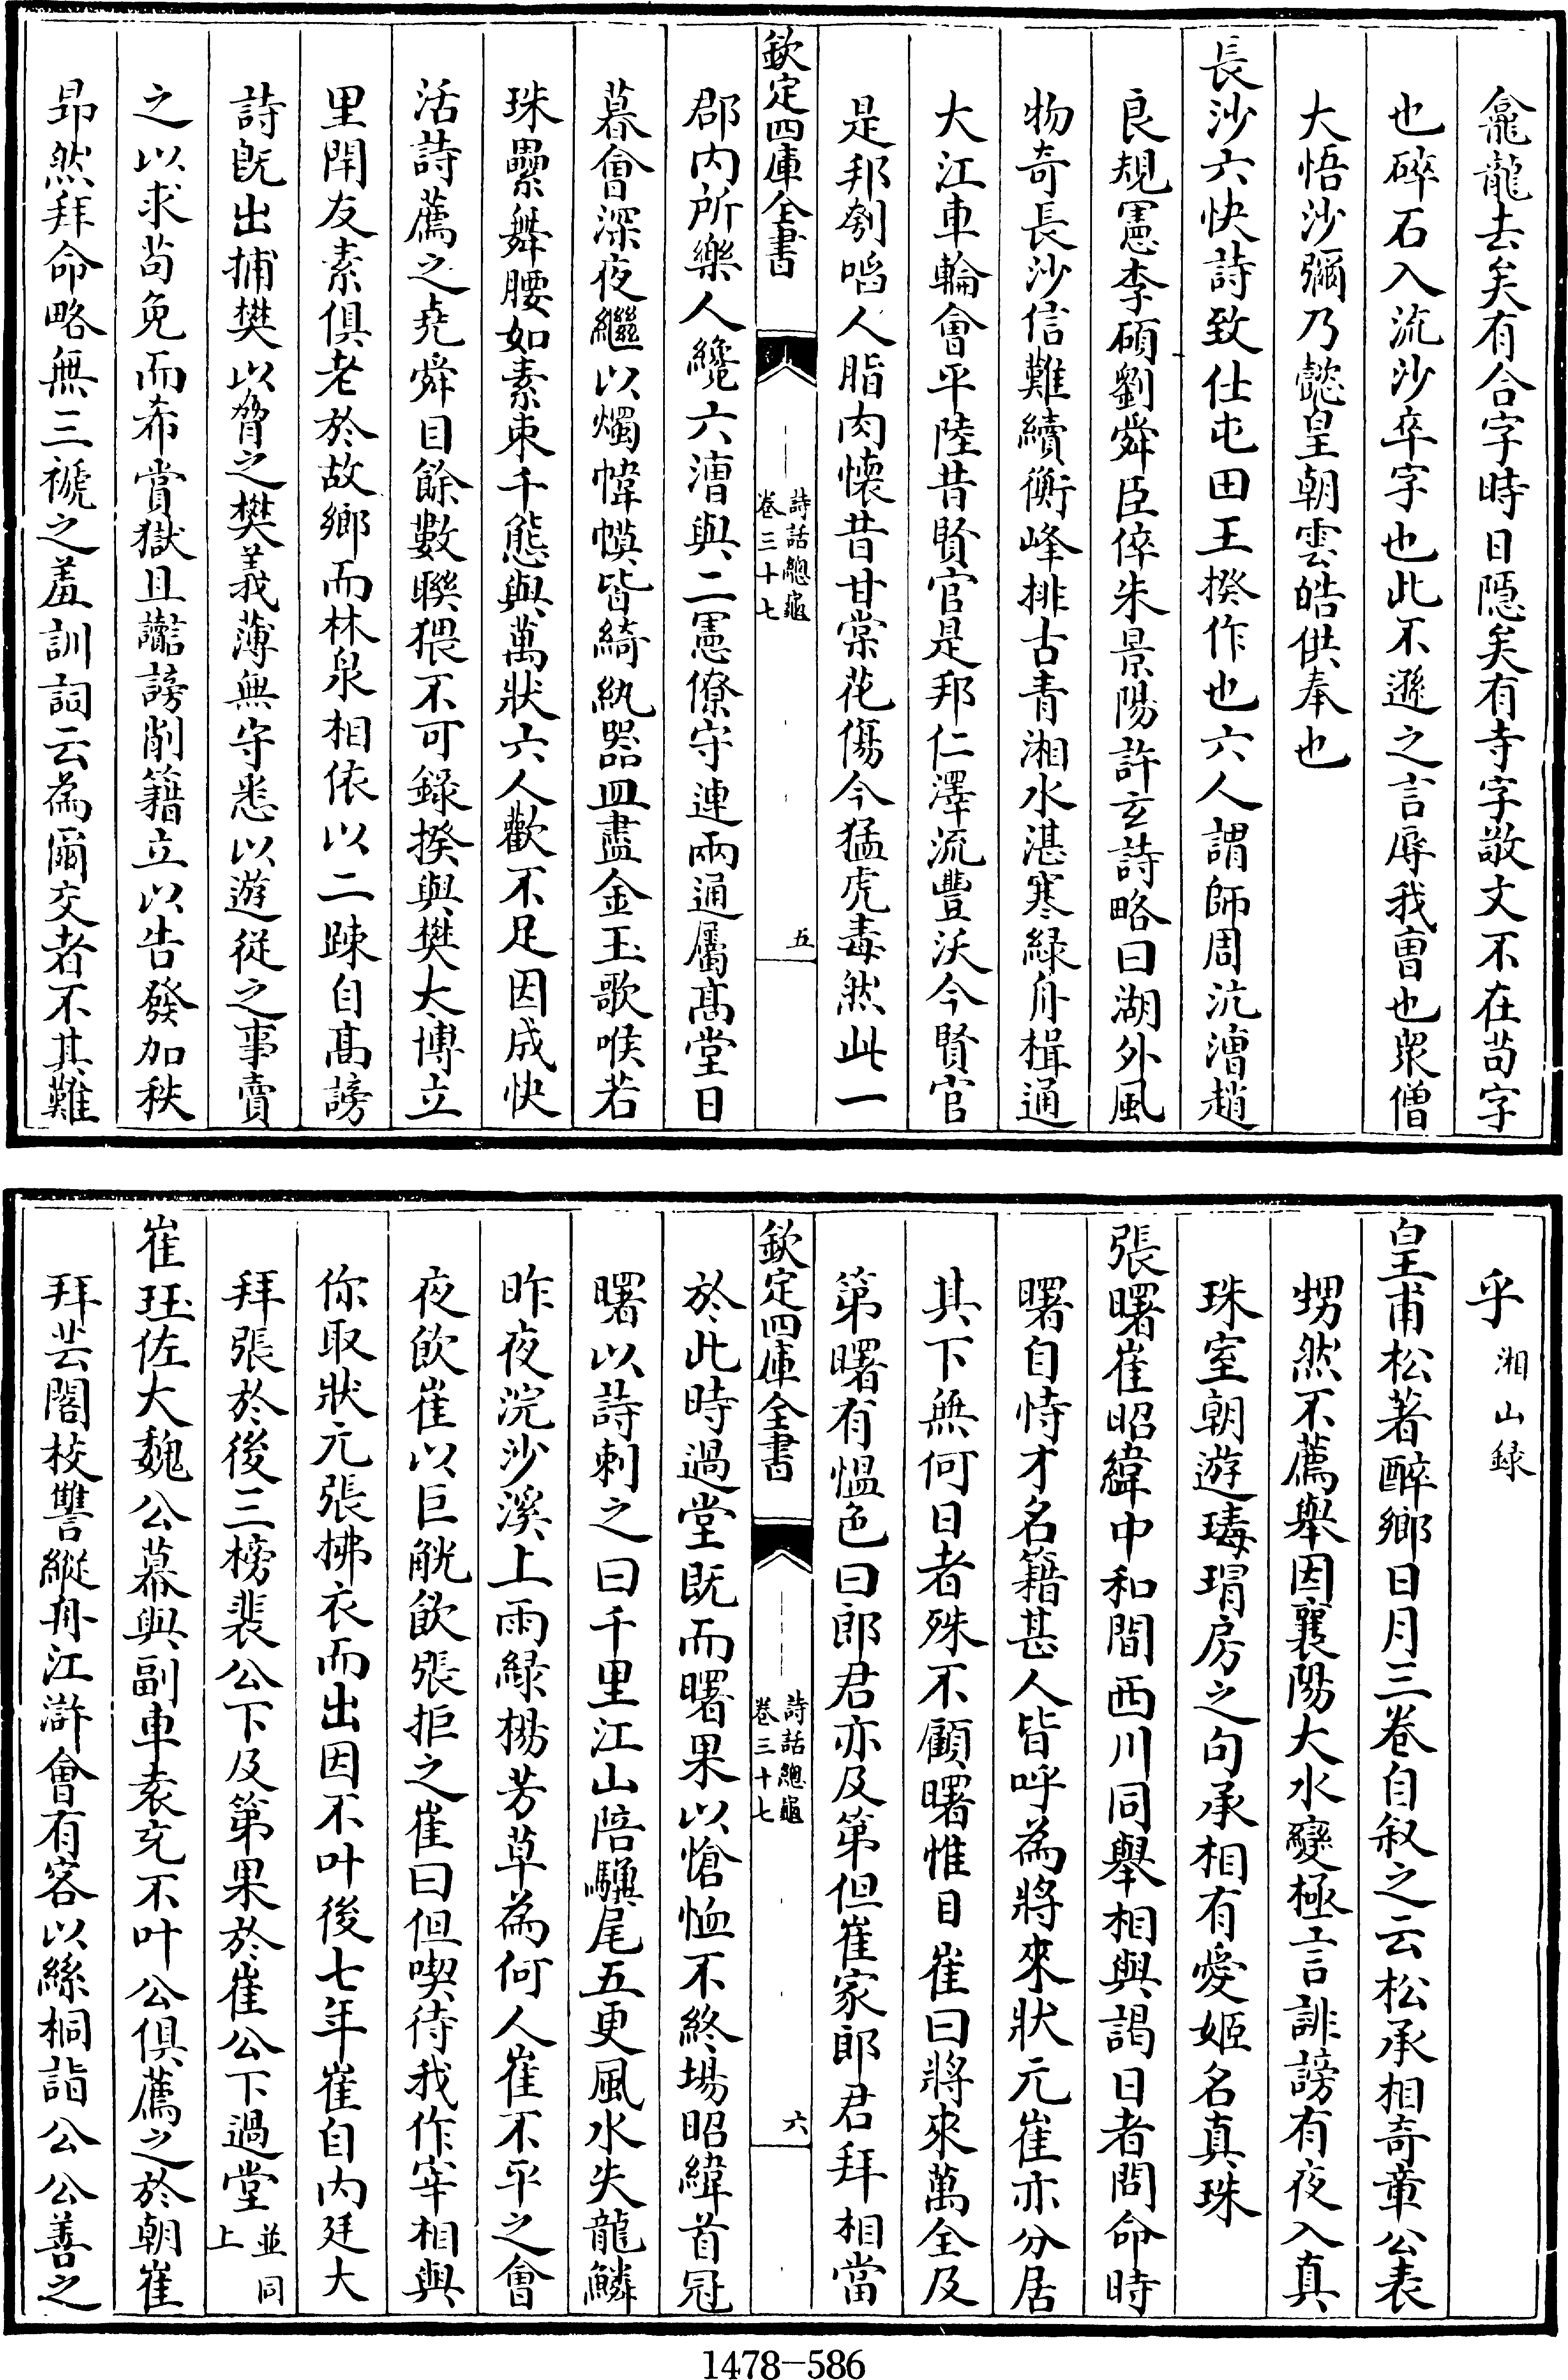 龕龍去矣有合字時日隱矣有寺字敬文不在苟字
也碎石入流沙卒字也此不遜之言辱我曹也衆僧
大悟沙彌乃懿皇朝雲皓供奉也
長沙六快詩致仕屯田王揆作也六人謂師周沆漕趙
良規憲李碩劉舜臣倅朱景陽許玄詩略曰湖外風
物奇長沙信難續衡峰排古青湘水湛寒緑舟楫通
大江車輪會平陸昔賢官是邦仁澤流豐沃今賢官
是邦刳啗人脂肉懷昔甘棠花傷今猛虎毒然此一
欽定四庫全書
詩話總龜
卷三十七
五
郡内所樂人纔六漕與二憲僚守連兩通屬髙堂日
暮會深夜繼以燭幃幙皆綺紈器皿盡金玉歌喉若
珠纍舞腰如素束千態與萬狀六人歡不足因成快
活詩薦之堯舜目餘數聯猥不可録揆與樊太博立
里閈友素俱老於故鄉而林泉相依以二踈自髙謗
詩既出捕樊以脅之樊義薄無守悉以遊從之事賣
之以求苟免而希賞獄且讞謗削籍立以告發加秩
昻然拜命略無三褫之羞訓詞云為爾交者不其難
乎湘山録
皇甫松著醉鄉日月三卷自叙之云松承相奇章公表
甥然不薦舉因襄陽大水變極言誹謗有夜入真
珠室朝遊瑇瑁房之句承相有愛姬名真珠
張曙崔昭緯中和間西川同舉相與謁日者問命時
曙自恃才名籍甚人皆呼為將來狀元崔亦分居
其下無何日者殊不顧曙惟目崔曰將來萬全及
第曙有愠色曰郎君亦及第但崔家郎君拜相當
欽定四庫全書
詩話總龜
卷三十七
六
於此時過堂既而曙果以愴恤不終場昭緯首冠
曙以詩刺之曰千里江山陪驥尾五更風水失龍鱗
昨夜浣沙溪上雨緑楊芳草為何人崔不平之會
夜飲崔以巨觥飲張拒之崔曰但喫待我作宰相與
你取狀元張拂衣而出因不叶後七年崔自内廷大
拜張於後三榜裴公下及第果於崔公下過堂並同上
崔珏佐大魏公幕與副車袁充不叶公俱薦之於朝崔
拜芸閣校讐縱舟江滸會有客以絲桐詣公公善之
1478-586